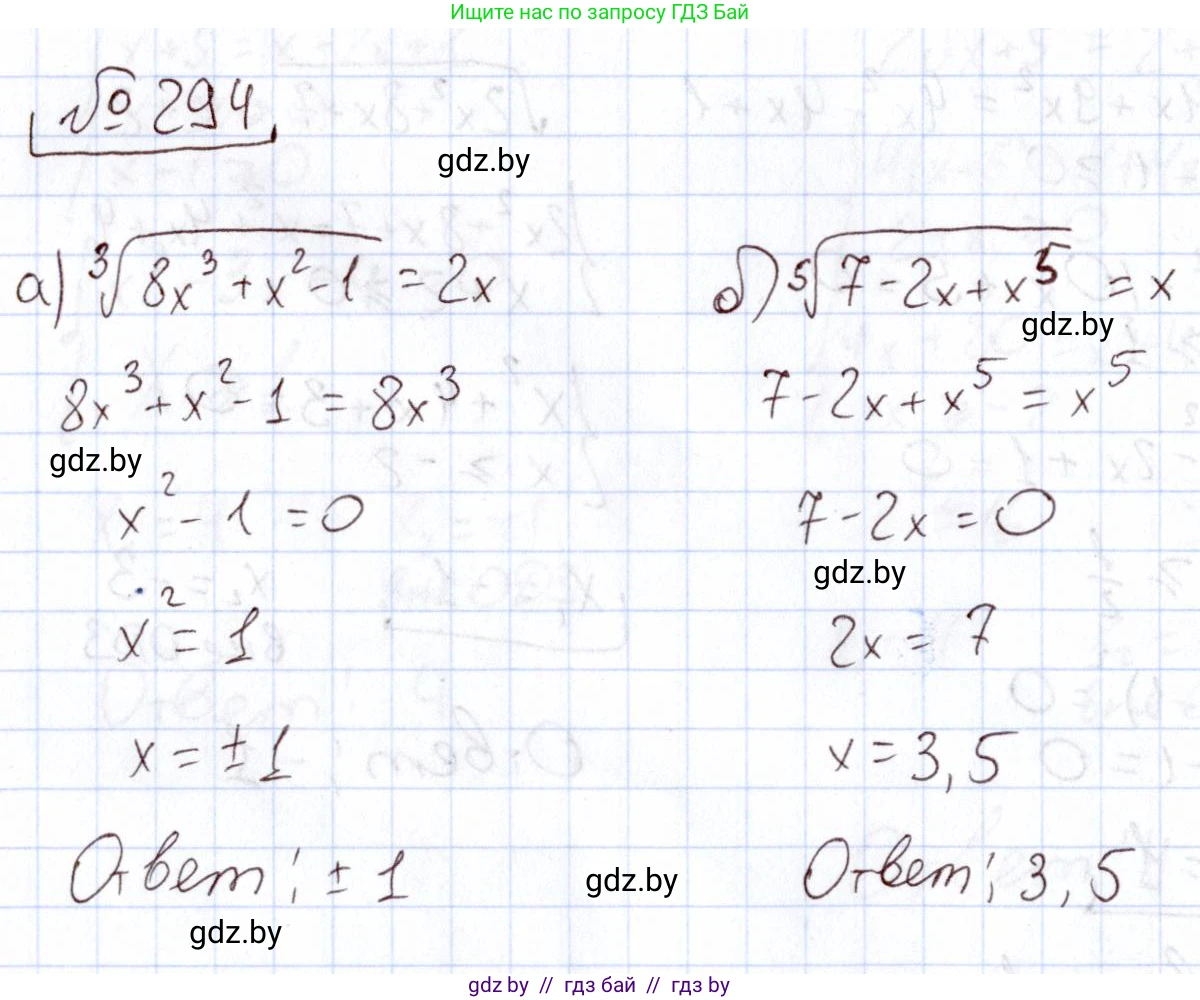 Ищите нас по запросу ГДЗ Бай
№ 294
gdz.by
а) ∛(8x³ + x² - 1) = 2x
8x³ + x² - 1 = 8x³
gdz.by
x² - 1 = 0
x² = 1
x = ± 1
Ответ: ± 1
gdz.by
б) ⁵√(7 - 2x + x⁵) = x
gdz.by
7 - 2x + x⁵ = x⁵
7 - 2x = 0
gdz.by
2x = 7
x = 3,5
Ответ: 3,5
gdz.by
gdz by // гдз бай // gdz by